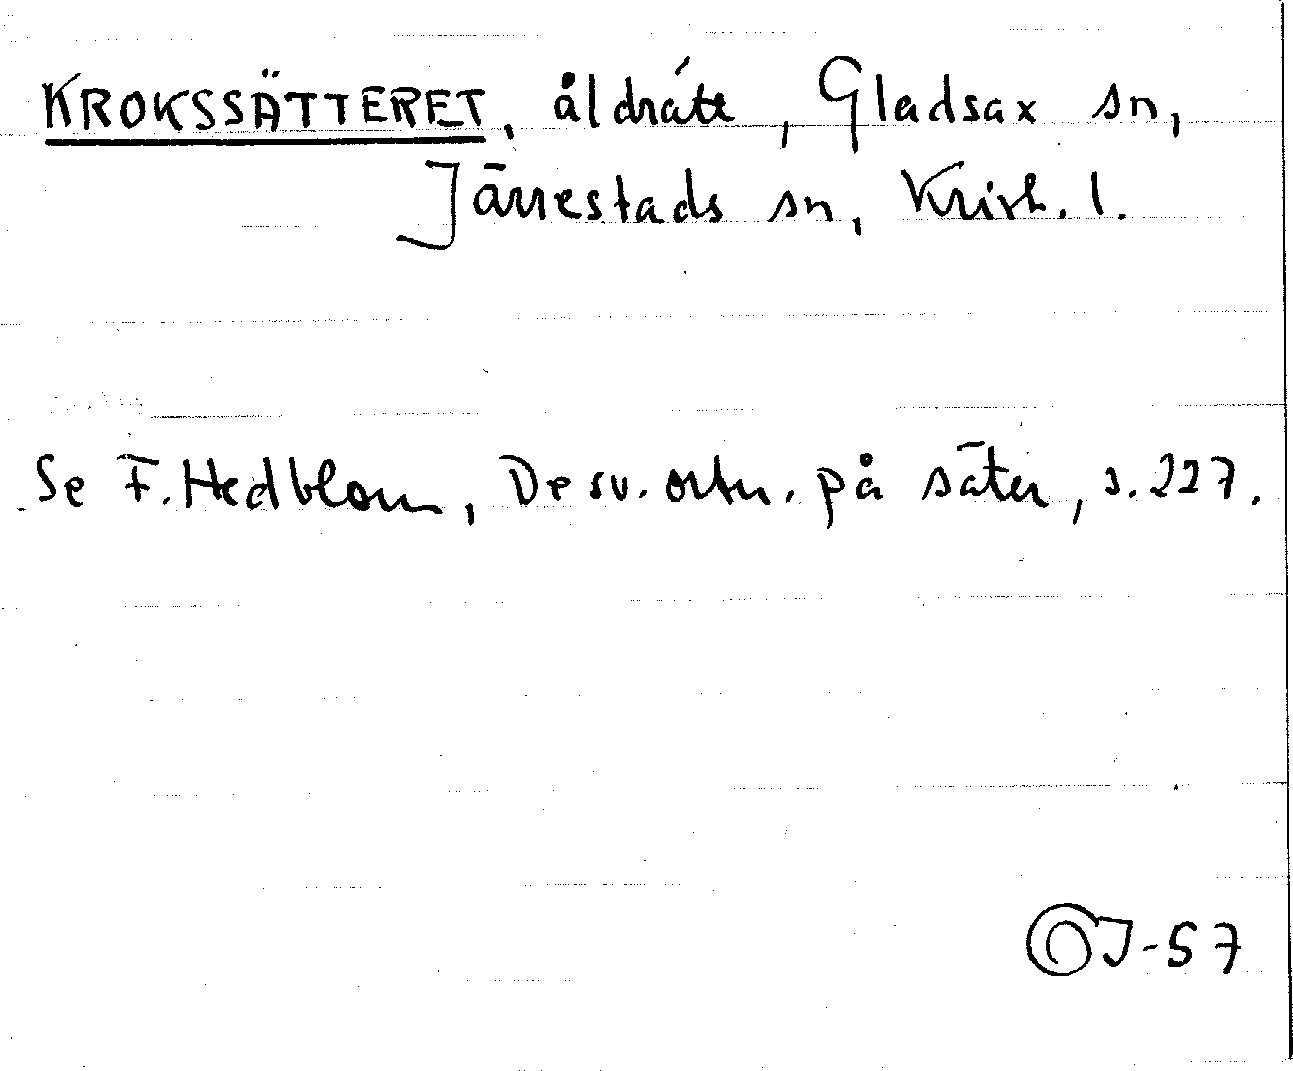 KROKSSÄTTERET, åldrätt, Gladsax sn,
Järrestads sn, Krist. l.
Se F. Hedblom, De sv. ortn. på säter, s. 227.
OJ-57